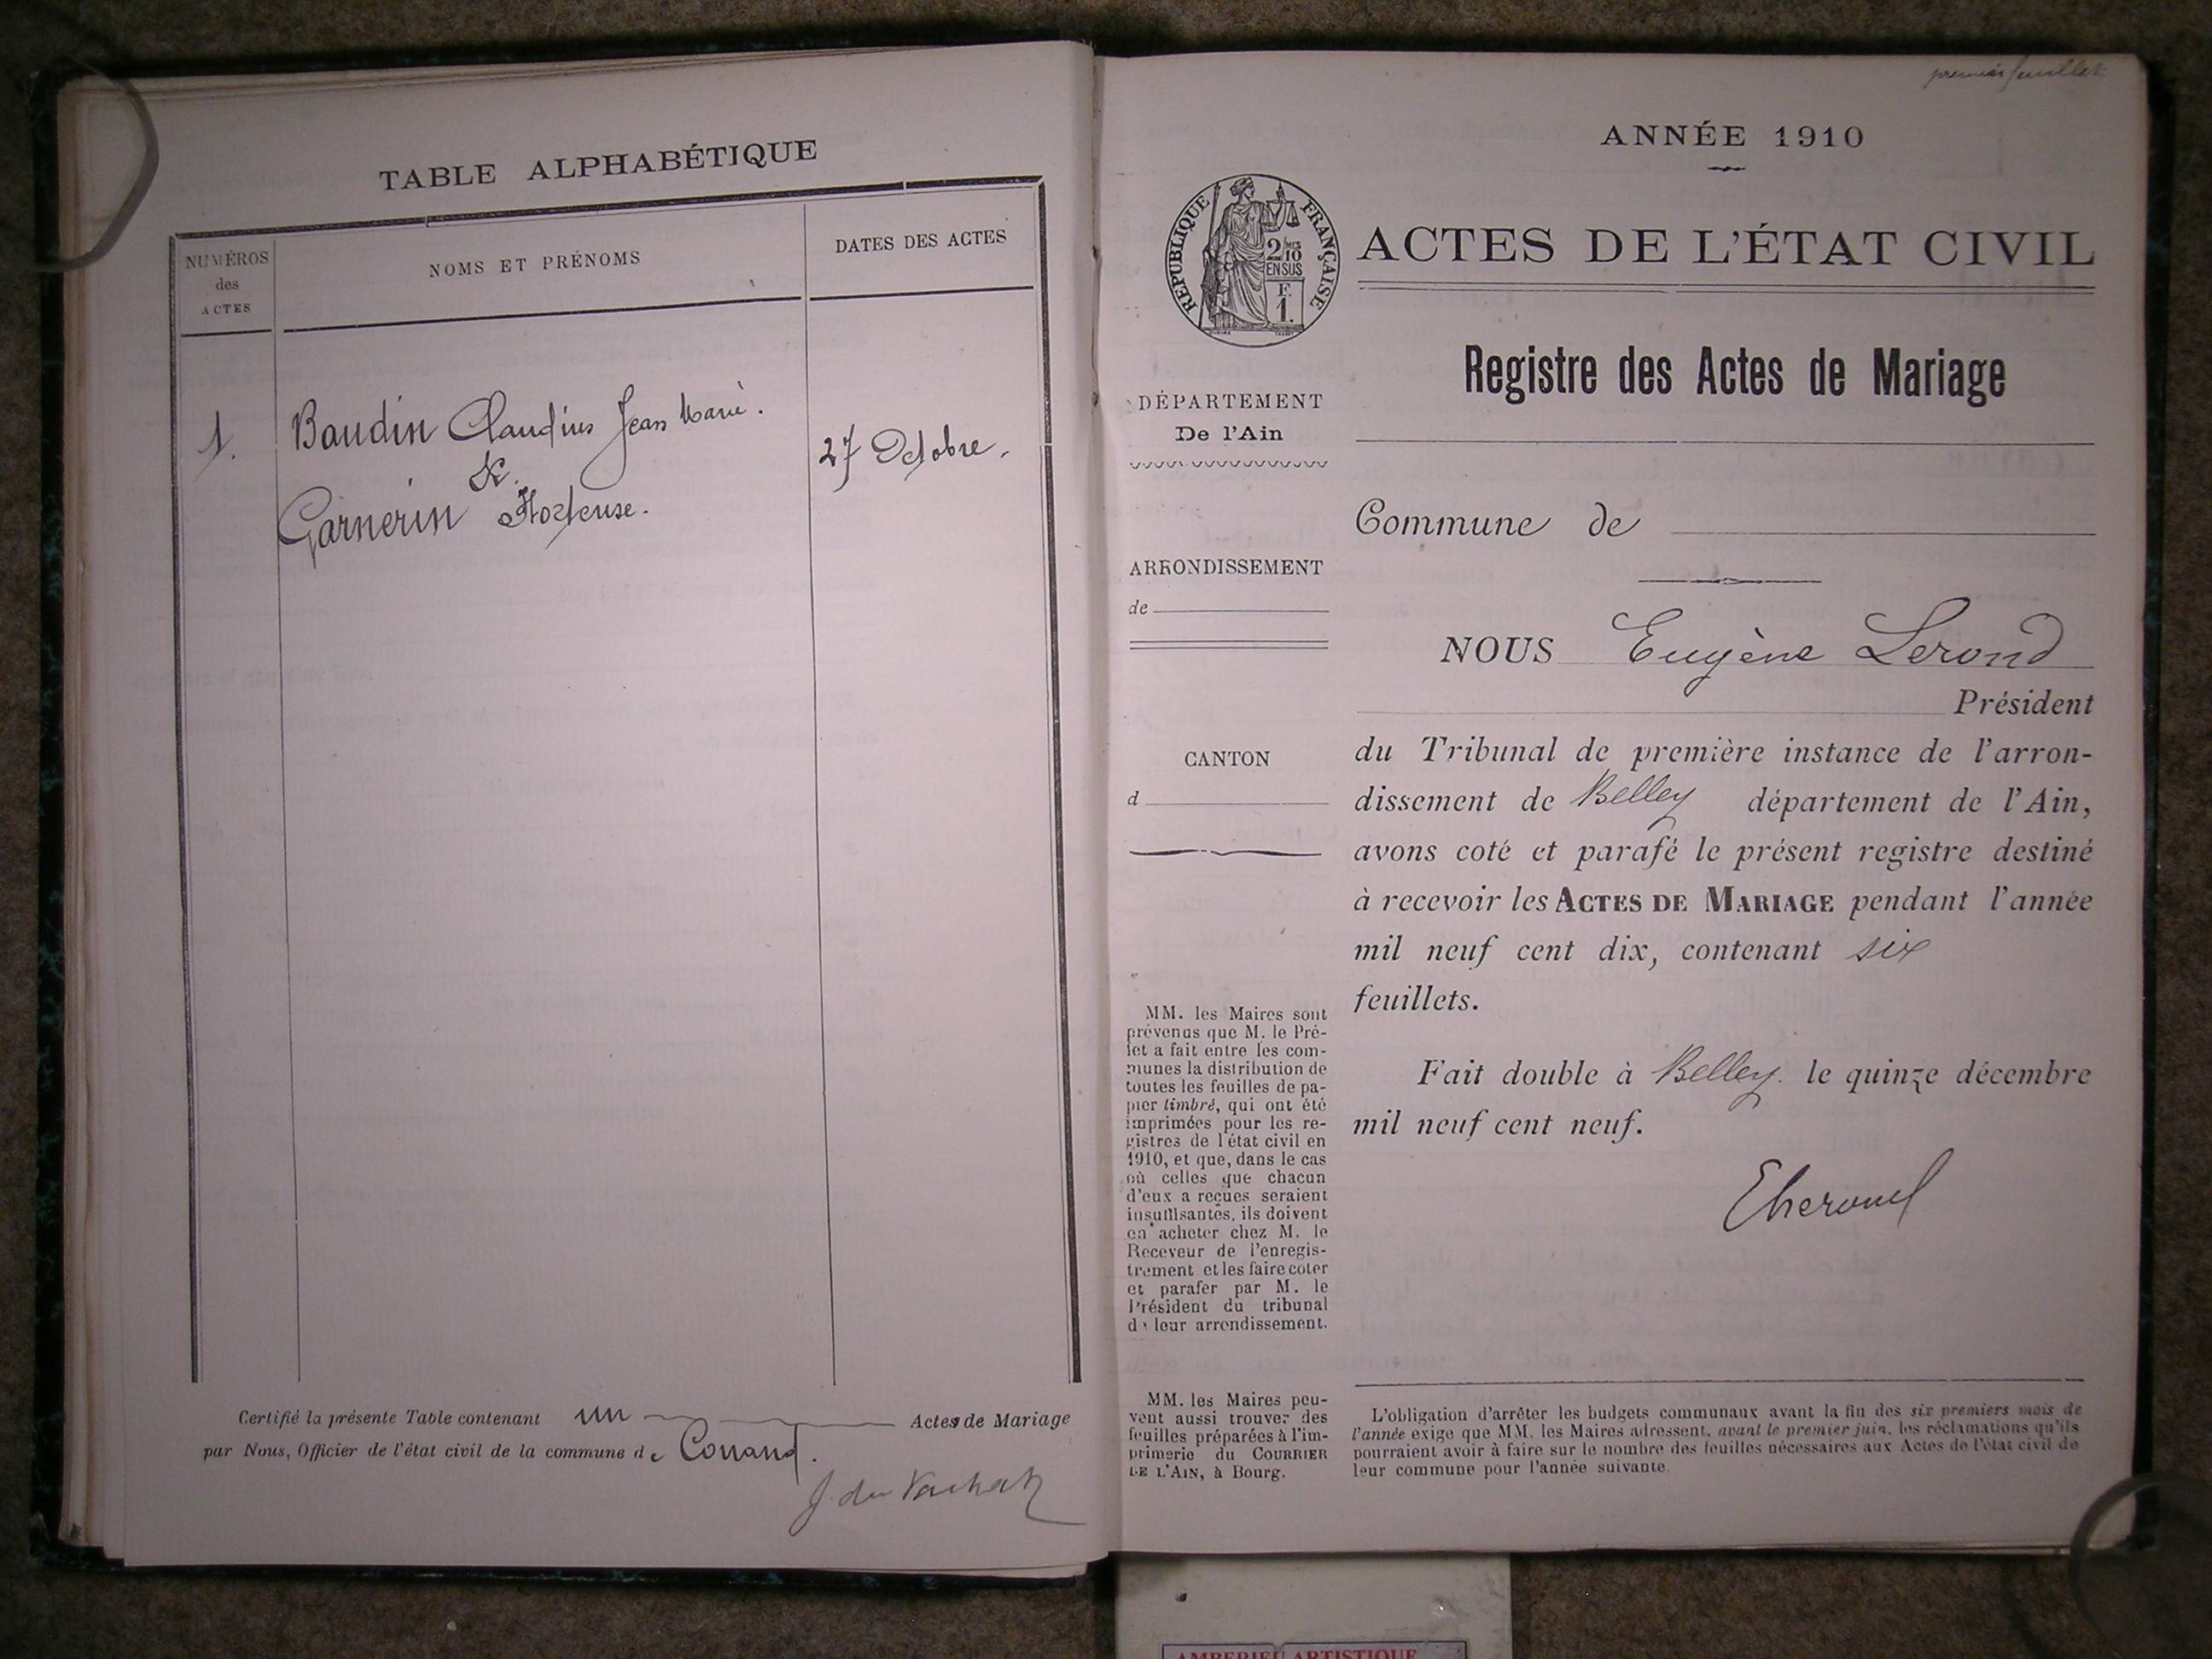 TABLE ALPHABÉTIQUE
NUMÉROS
des
ACTES
NOMS ET PRÉNOMS
DATES DES ACTES
1.
Baudin Claudius Jean Marie.
&.
Garnerin Hortense.
27 Octobre.
Certifié la présente Table contenant un Actes de Mariage
par Nous, Officier de l'état civil de la commune de Conand.
premier feuillet
ANNÉE 1910
RÉPUBLIQUE FRANÇAISE
2/10 MES
EN SUS
F.
1.
ACTES DE L'ÉTAT CIVIL
Registre des Actes de Mariage
DÉPARTEMENT
De l'Ain
ARRONDISSEMENT
de
CANTON
d
MM. les Maires sont
prévenus que M. le Pré-
fet a fait entre les com-
munes la distribution de
toutes les feuilles de pa-
pier timbré, qui ont été
imprimées pour les re-
gistres de l'état civil en
1910, et que, dans le cas
où celles que chacun
d'eux a reçues seraient
insuffisantes, ils doivent
en acheter chez M. le
Receveur de l'enregis-
trement et les faire coter
et parafer par M. le
Président du tribunal
de leur arrondissement.
MM. les Maires peu-
vent aussi trouver des
feuilles préparées à l'im-
primerie du COURRIER
DE L'AIN, à Bourg.
Commune de
NOUS Eugène Lerond
Président
du Tribunal de première instance de l'arron-
dissement de Belley département de l'Ain,
avons coté et parafé le présent registre destiné
à recevoir les ACTES DE MARIAGE pendant l'année
mil neuf cent dix, contenant six
feuillets.
Fait double à Belley. le quinze décembre
mil neuf cent neuf.
L'obligation d'arrêter les budgets communaux avant la fin des six premiers mois de
l'année exige que MM. les Maires adressent, avant le premier juin, les réclamations qu'ils
pourraient avoir à faire sur le nombre des feuilles nécessaires aux Actes de l'état civil de
leur commune pour l'année suivante.
AMBERIEU ARTISTIQUE